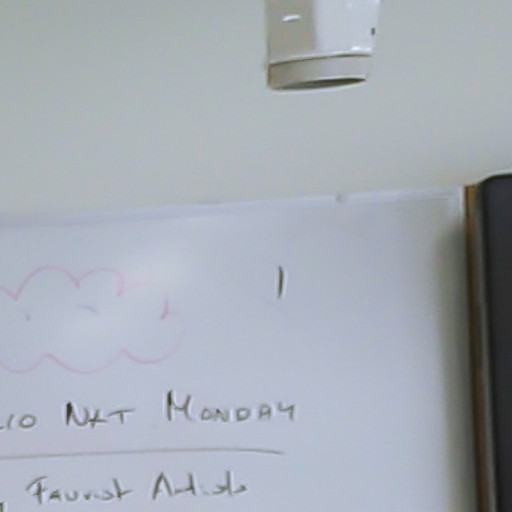 10 NXT MONDAY
Fauvist Artists